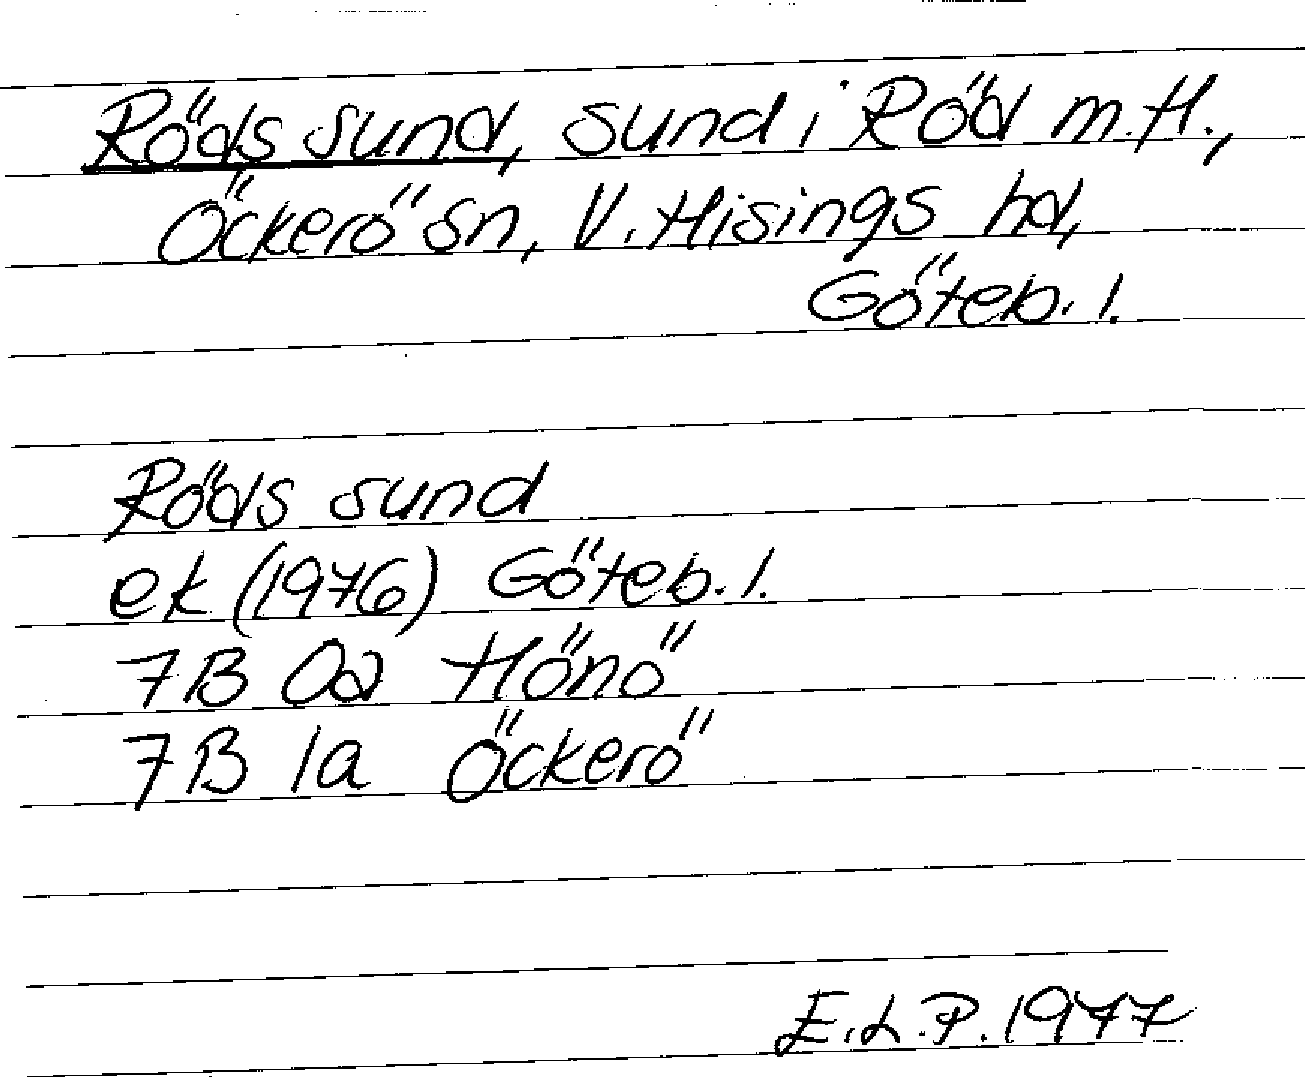 Röds sund, sund i Röd m.fl.,
Öckerö sn, V. Hisings hd,
Göteb. l.
Röds sund
ek (1976) Göteb. l.
7B 0a Hönö
7B 1a Öckerö
E.L.P. 1977